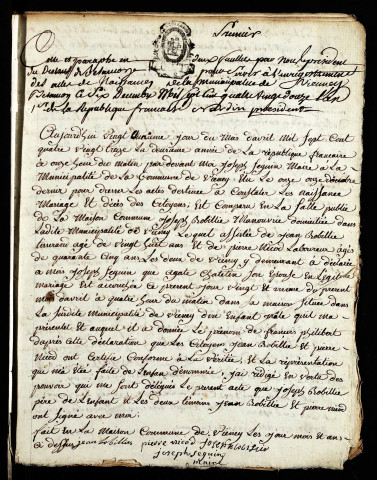 Premier
Cotté et paraphé en
du District de Besançon
des actes de Naissances de la municipalité de Vieuvey
Besançon le Six Decembre Mil sept cent quatre vingt douze L'an
1er de la République francaise président
Aujourd'hui vingt unieme jour du Mois d'avril Mil Sept Cent
quatre vingt treize La deuxieme année de la République francaise
à onze heure du matin par devant moi Joseph Seguin Maire de La
Municipalité de La Commune de Elu le onze décembre
dernier pour dresser Les actes destinés à Constater Les Naissances
Mariage et décès des Citoyens, Est Comparu en La Salle publique
de La Maison Commune Joseph Robillie Manouvrie domicilié dans
Ladite Municipalité de Lequel assisté de jean Robillie
âgé de vingt huit ans et de pierre Nicod Laboureur âgé
de quarante Cinq ans Les deux de a déclaré
à Moi Joseph Seguin que Chatelin Son épouse en Légitime
mariage Est accouchée Ce présent jour vingt et unieme du présent
mois d'avril à quatre heure du matin dans La maison située dans
La Susdite Municipalité de d'un Enfant mâle qu'il m'a
présenté et auquel il a donné Le prénom de francois philibert
d'après cette déclaration que Les Citoyens jean Robillie et pierre
Nicod ont Certifié Conforme à La Vérité et La représentation
qui m'a été faite de L'enfan dénommé, j'ai rédigé en vertu des
pouvoir qui me sont délégués Le présent acte que Joseph Robillie
père de L'enfant et Les deux témoins jean Robillie et pierre nicod
ont signé avec moi.
fait en La Maison Commune de Les jour mois et an
à dessus jean Robillier pierre nicod Joseph robillier
joseph seguin
maire